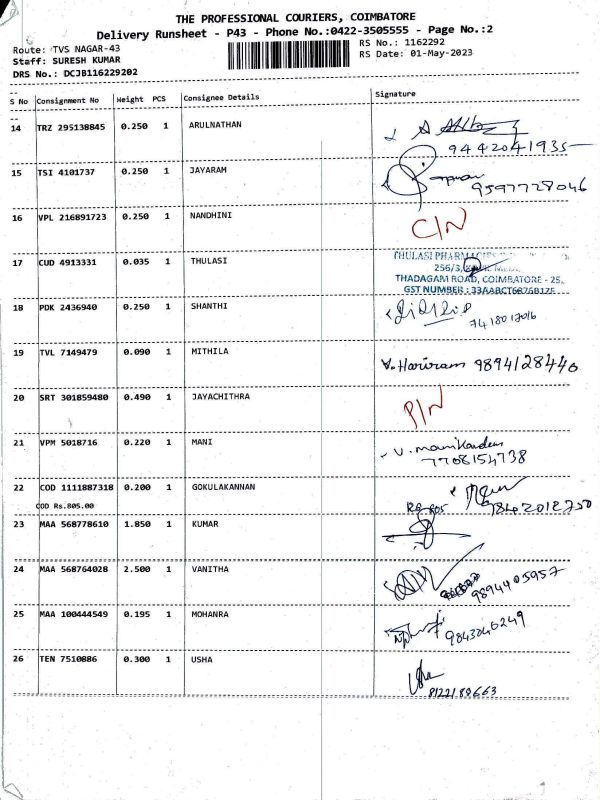 THE PROFESSIONAL COURIERS, COIMBATORE
Delivery Runsheet - P43 - Phone No.:0422-3505555 - Page No.:2
Route: TVS NAGAR-43 RS No.: 1162292
Staff: SURESH KUMAR RS Date: 01-May-2023
DRS No.: DCJB116229202
S No Consignment No Weight PCS Consignee Details Signature
14 TRZ 295138845 0.250 1 ARULNATHAN
9442041935
15 TSI 4101737 0.250 1 JAYARAM
9597728046
16 VPL 216891723 0.250 1 NANDHINI C/N
17 CUD 4913331 0.035 1 THULASI THULASI PHARMACIES
256/3,
THADAGAM ROAD, COIMBATORE - 25.
GST NUMBER :
18 PDK 2436940 0.250 1 SHANTHI
19 TVL 7149479 0.090 1 MITHILA V. Hariram 9894128440
20 SRT 301859480 0.490 1 JAYACHITHRA P/N
21 VPM 5018716 0.220 1 MANI V. Manikandan
7708154738
22 COD 1111887318 0.200 1 GOKULAKANNAN
COD Rs.805.00 9842012750
23 MAA 568778610 1.850 1 KUMAR
24 MAA 568764028 2.500 1 VANITHA
9894405957
25 MAA 100444549 0.195 1 MOHANRA
9843046249
26 TEN 7510886 0.300 1 USHA Usha